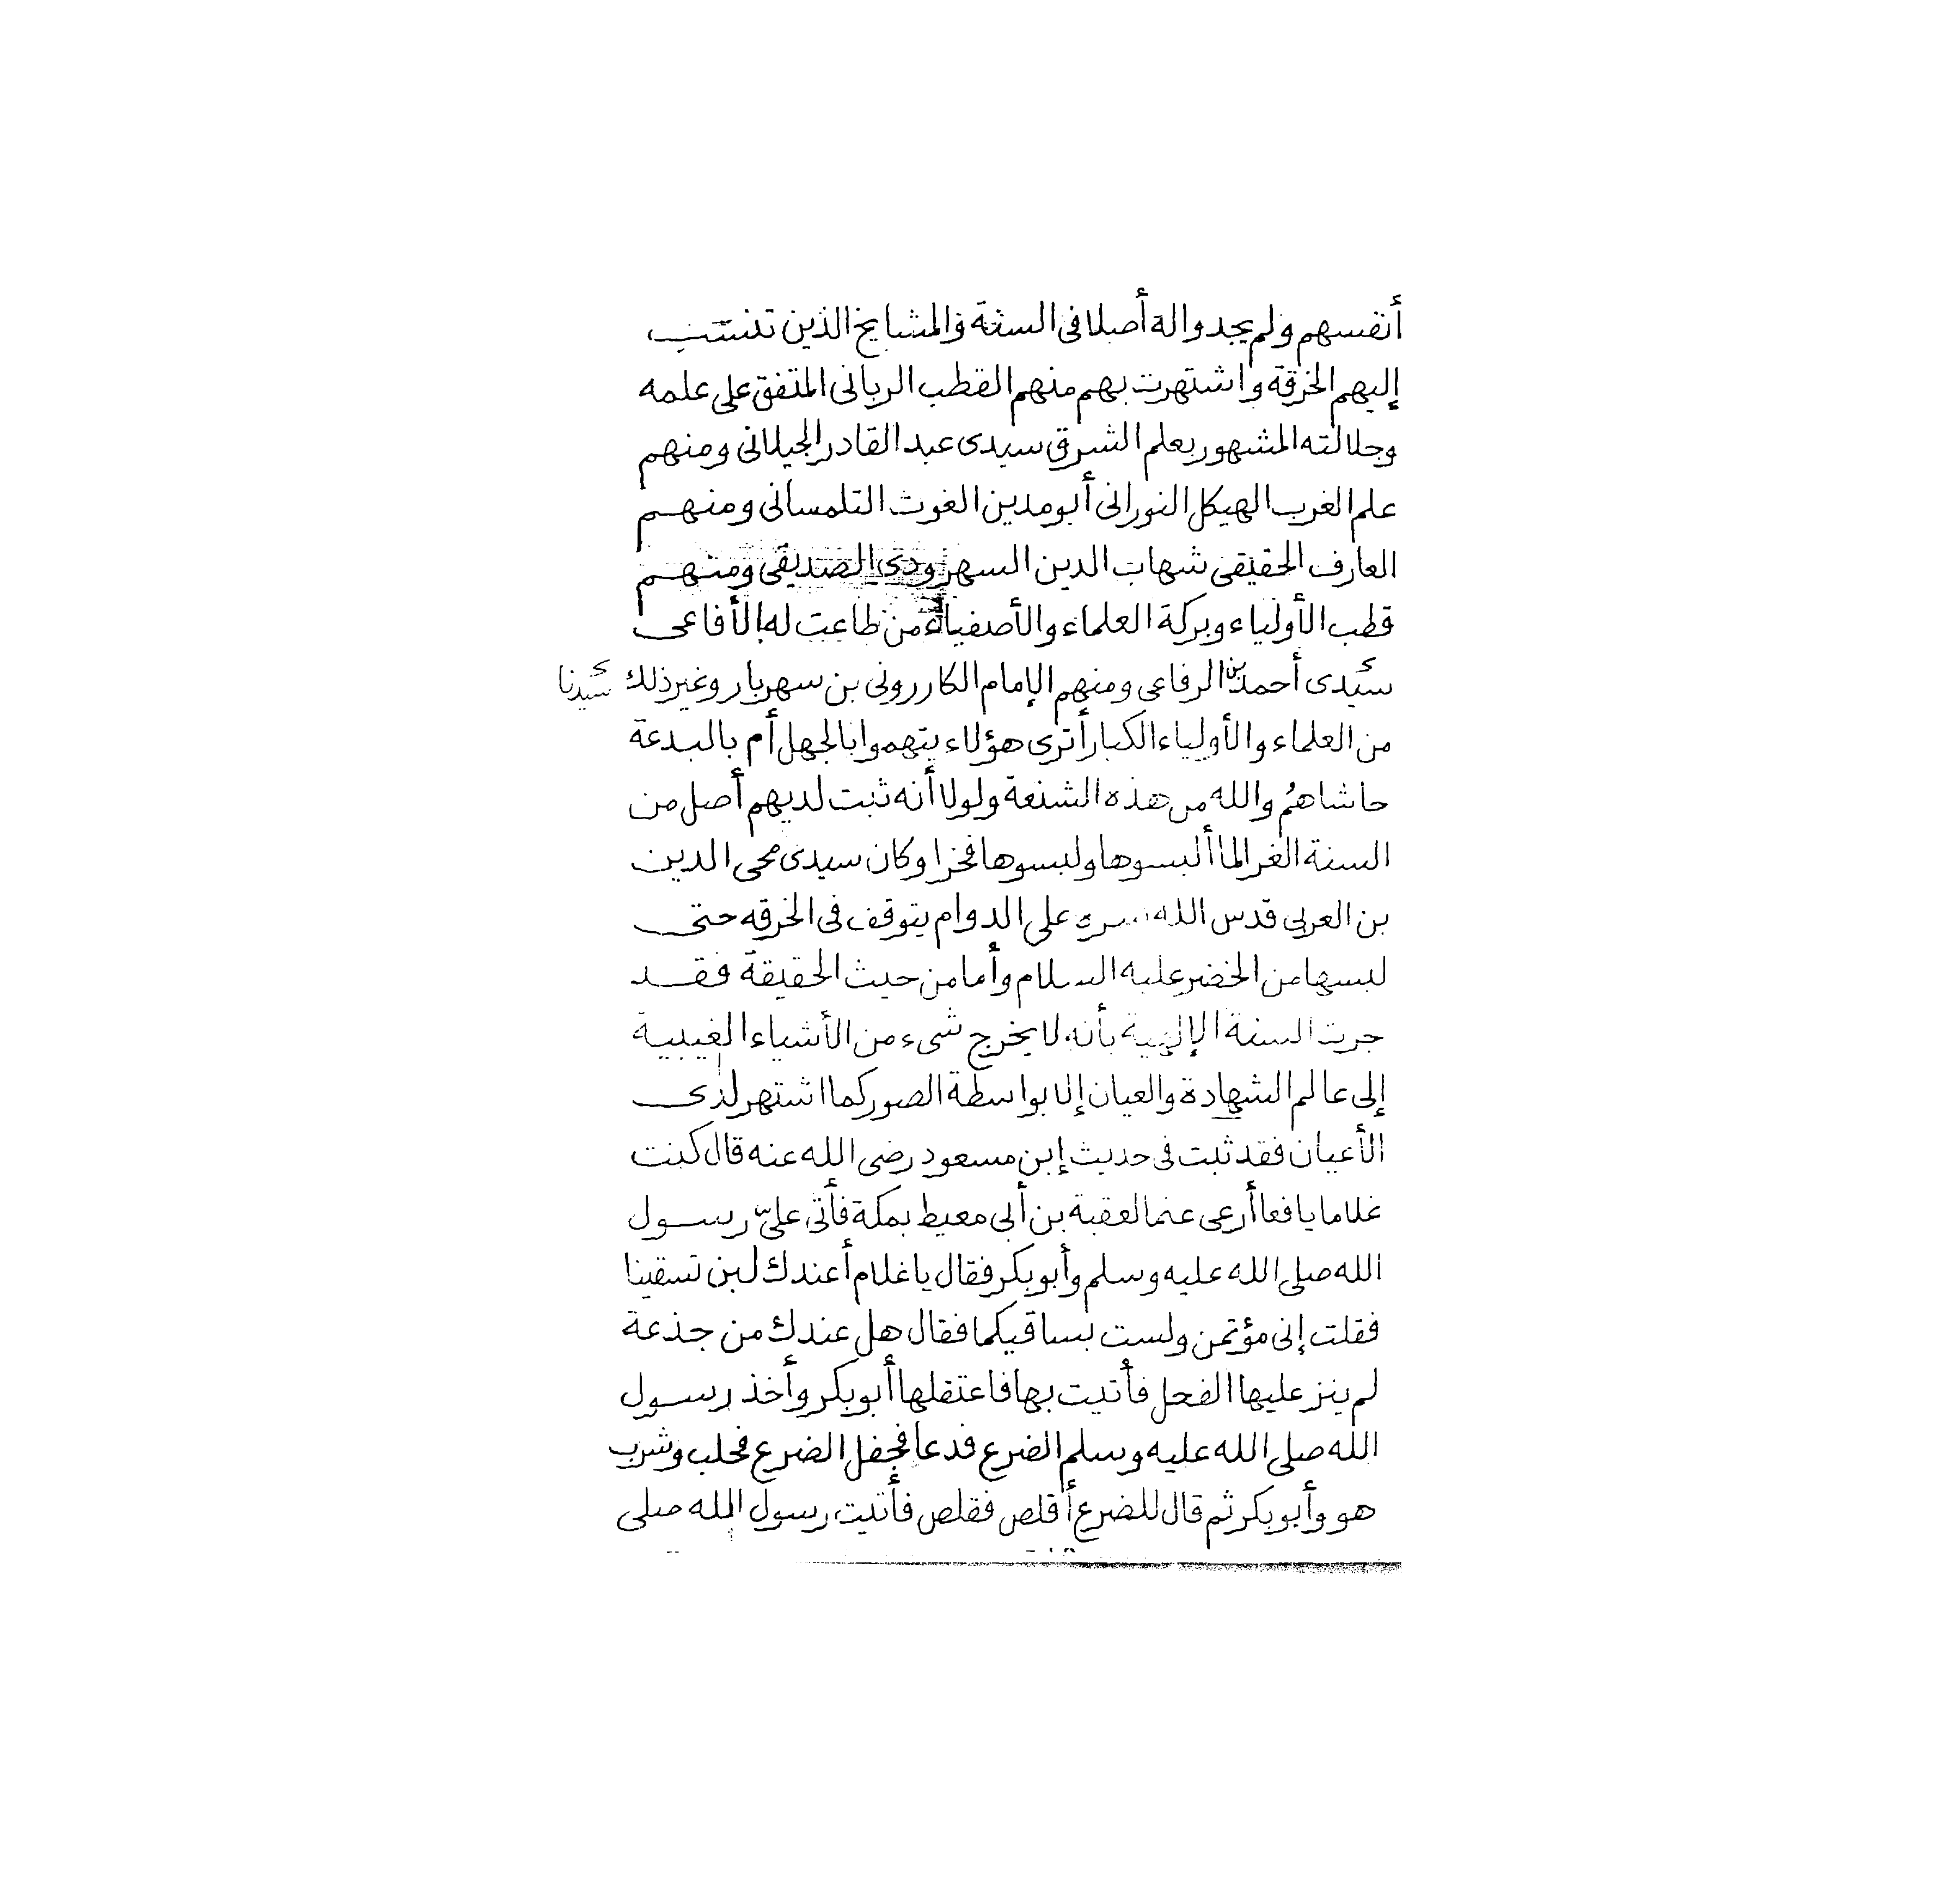 أنفسهم ولم يجدوا له أصلا فى السنة والمشايخ الذين تنتسب
إليهم الخرقة واشتهرت بهم منهم القطب الربانى المتفق على علمه
وجلالته المشهور بعلم الشرق سيدى عبد القادر الجيلانى ومنهم
علم الغرب الهيكل النورانى أبو مدين الغوث التلمسانى ومنهم
العارف الحقيقى شهاب الدين السهرودى الصديقى ومنهم
قطب الأولياء وبركة العلماء والأصفياء من طاعت له الأفاعى
سيدى أحمد بن الرفاعى ومنهم الإمام الكاررونى بن سهربار وغير ذلك سيدنا
من العلماء والأولياء الكبار أترى هؤلاء يتهموا بالجهل أم بالبدعة
حاشاهم والله من هذه الشنعة ولولا أنه ثبت لديهم أصل من
السنة الغرا لما ألبسوها ولبسوها فخرا وكان سيدى محى الدين
بن العربى قدس الله سره على الدوام يتوقف فى الخرقه حتى
لبسها من الخضر عليه السلام وأما من حيث الحقيقة فقد
جرت السنة الإلهية بأنه لا يخرج شىء من الأشياء الغيبية
إلى عالم الشهادة والعيان إلا بواسطة الصور كما اشتهر لذى
الأعيان فقد ثبت فى حديث إبن مسعود رضى الله عنه قال كنت
غلاما يافعا أرعى غنما لعقبة بن أبى معيط بمكة فأتى علىّ رسول
الله صلى الله عليه وسلم وأبو بكر فقال يا غلام أعندك لبن تسقينا
فقلت إنى مؤتمن ولست بساقيكما فقال هل عندك من جذعة
لم ينز عليها الفحل فأتيت بها فاعتقلها أبو بكر وأخذ رسول
الله صلى الله عليه وسلم الضرع فدعا فجفل الضرع فحلب وشرب
هو وأبو بكر ثم قال للضرع أقلص فقلص فأتيت رسول الله صلى